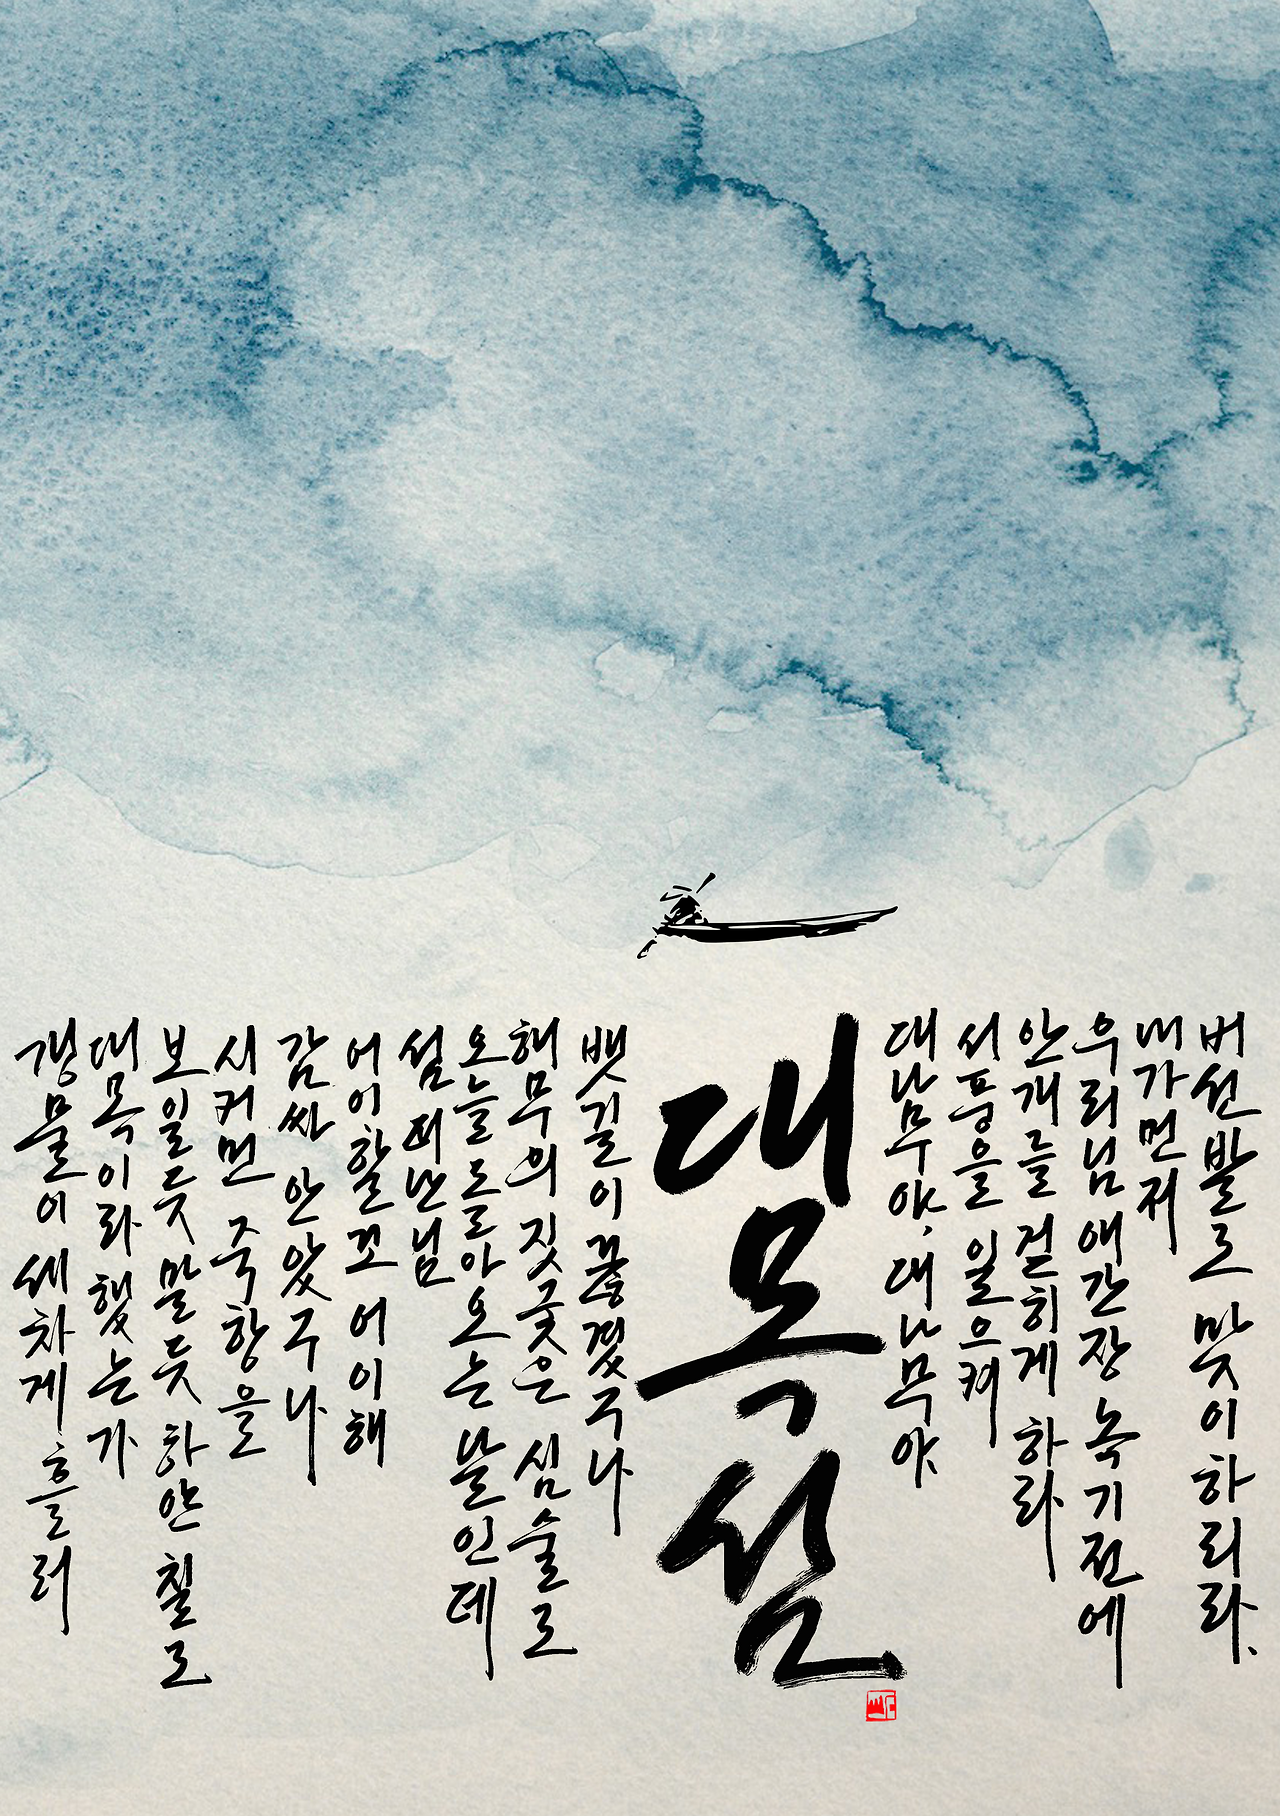 갱물이 세차게 흘러
대목이라 했는가
보일듯 말듯 하얀 칠로
시커먼 죽항을
감싸 안았구나
어이할꼬 어이해
섬 떠난 님
오늘 돌아오는 날인데
해무의 짓궂은 심술로
뱃길이 끊겼구나
대목섬
대나무야, 대나무야,
서풍을 일으켜
안개를 걷히게 하라
우리님 애간장 녹기전에
내가 먼저
버선발로 맞이하리라.